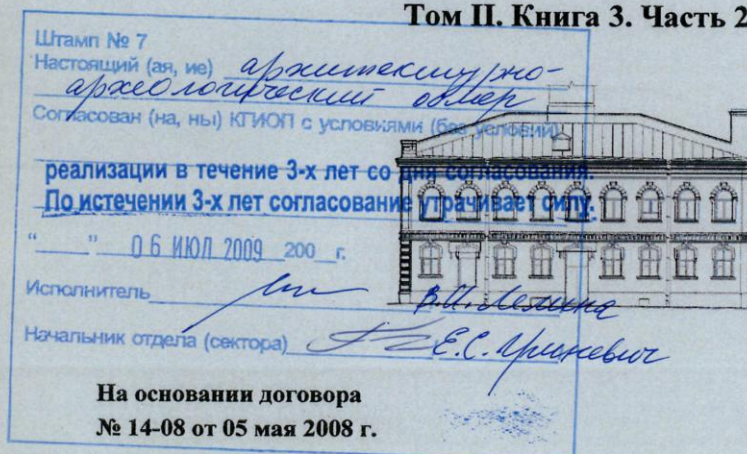 Том II. Книга 3. Часть 2
Штамп № 7
Настоящий (ая, ие) архитектурно-
археологический обмер
Согласован (на, ны) КГИОП с условиями (без условий)
реализации в течение 3-х лет со дня согласования.
По истечении 3-х лет согласование утрачивает силу.
“___”__06 ИЮЛ 2009_200__г.
Исполнитель В.И.
Начальник отдела (сектора) Е.С.
На основании договора
№ 14-08 от 05 мая 2008 г.